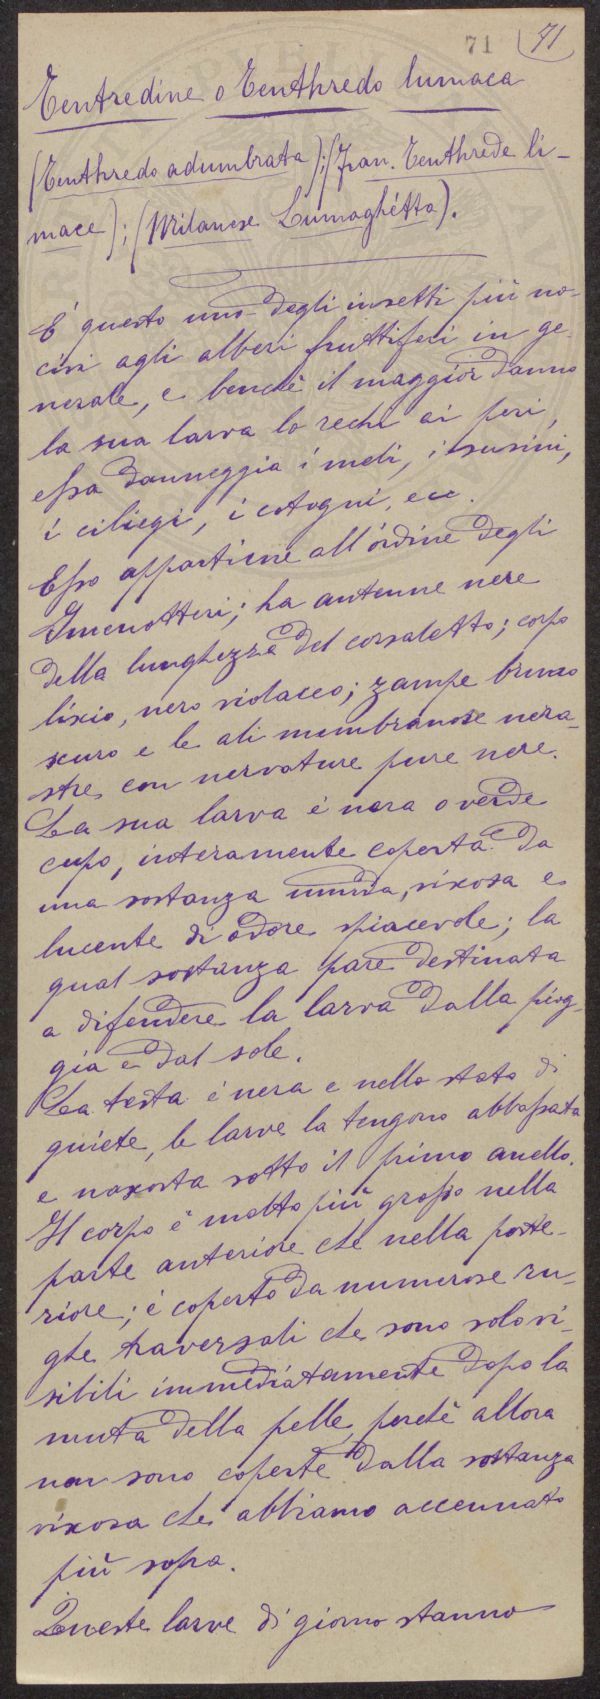 71 71
Tentredine o Tenthredo lumaca
(Tenthredo adumbrata); (Fran. Tenthrede li-
mace); (Milanese Lumaghétta).
E' questo uno degli insetti più no-
civi agli alberi fruttiferi in ge-
nerale, e benchè il maggior danno
la sua larva lo rechi ai peri,
essa danneggia i meli, i susini,
i ciliegi, i cotogni, ecc.
Esso appartiene all'ordine degli
Imenotteri; ha antenne nere
della lunghezza del corsaletto; corpo
liscio, nero violaceo; zampe bruno
scuro e le ali membranose nera-
stre con nervature pure nere.
La sua larva è nera o verde
cupo, interamente coperta da
una sostanza umida, vixosa e
lucente di odore spiacevole; la
qual sostanza pare destinata
a difendere la larva dalla piog-
gia e dal sole.
La testa è nera e nello stato di
quiete, le larve la tengono abbassata
e nascosta sotto il primo anello.
Il corpo è molto più grosso nella
parte anteriore che nella poste-
riore; è coperto da numerose ru-
ghe traversali che sono solo vi-
sibili immediatamente dopo la
muta della pelle, perchè allora
non sono coperte dalla sostanza
vixosa che abbiamo accennato
più sopra.
Queste larve di giorno stanno